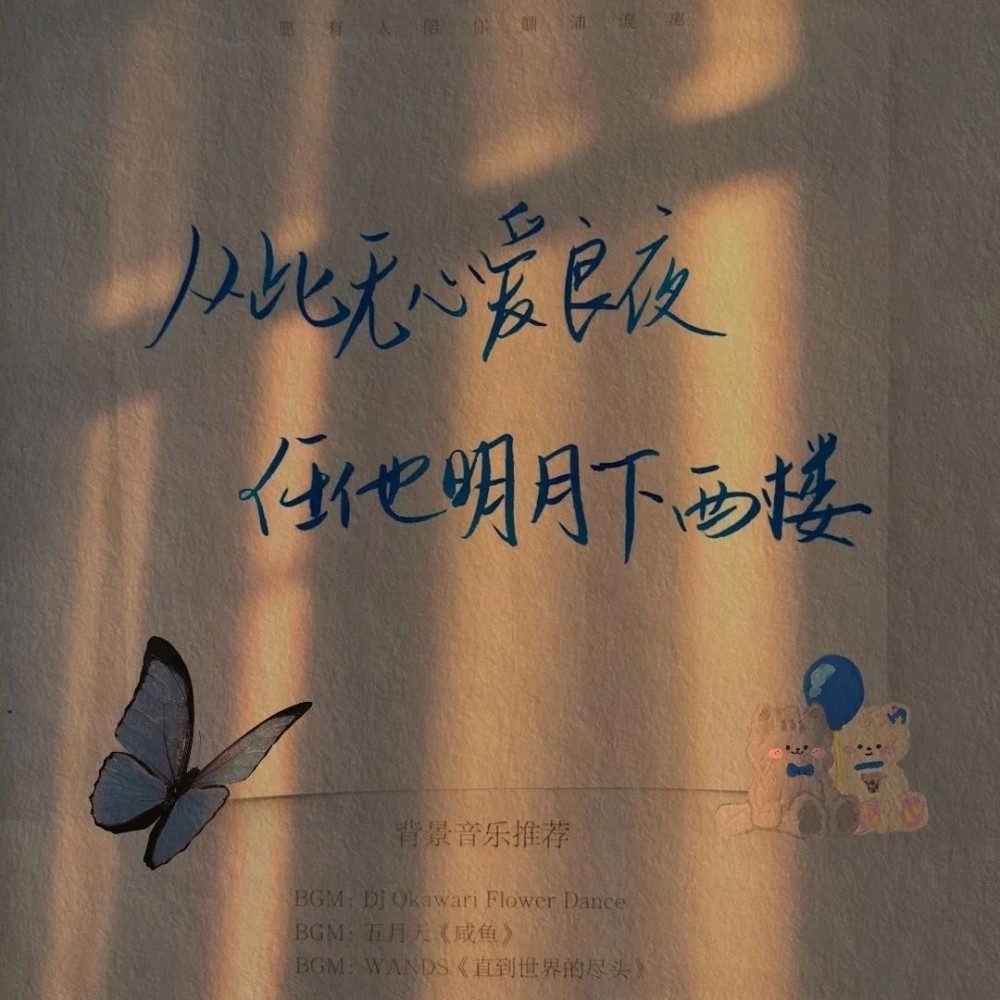 愿有人陪你颠沛流离
从此无心爱良夜
任他明月下西楼
背景音乐推荐
BGM: Dj Okawari Flower Dance
BGM: 五月天《咸鱼》
BGM: WANDS《直到世界的尽头》